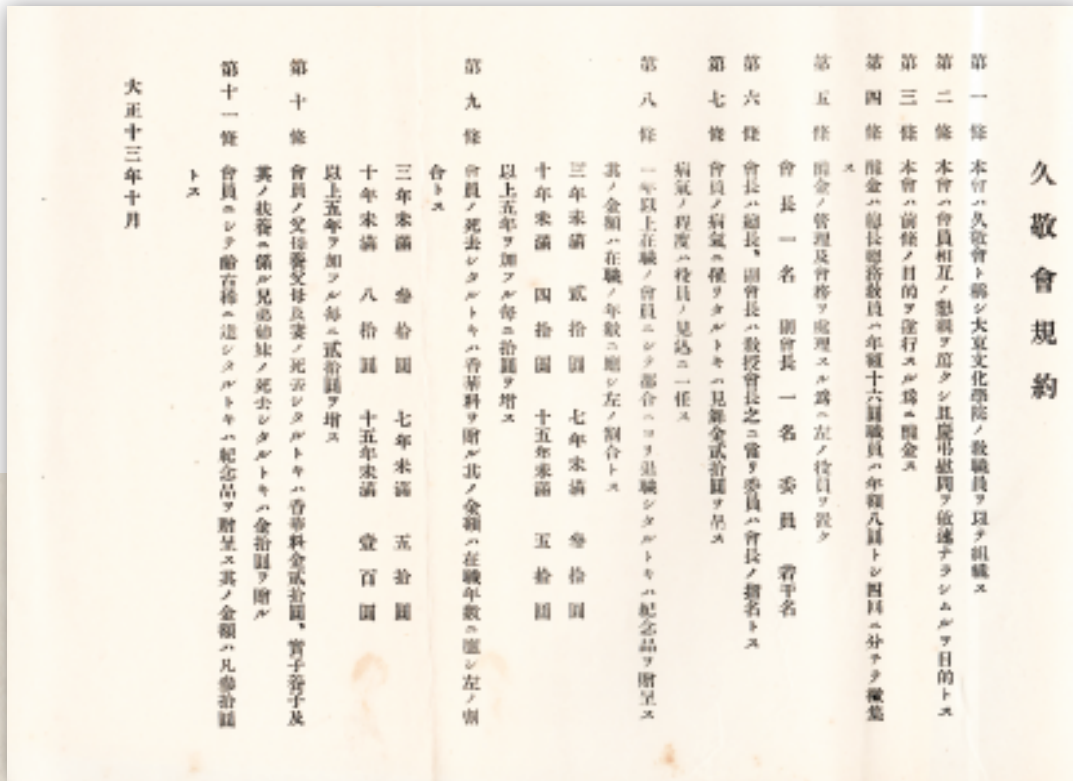 久敬會規約
第一條 本會ハ久敬會ト稱シ大東文化學院ノ敎職員ヲ以テ組織ス
第二條 本會ハ會員相互ノ懇親ヲ篤クシ且慶弔慰問ヲ敏速ナラシムルヲ目的トス
第三條 本會ハ前條ノ目的ヲ遂行スル爲ニ醵金ス
第四條 醵金ハ總長總務敎員ハ年額十六圓職員ハ年額八圓トシ四回ニ分チテ徵集
ス
第五條 醵金ノ管理及會務ヲ處理スル爲ニ左ノ役員ヲ置ク
會長一名 副會長一名 委員 若干名
第六條 會長ハ總長、副會長ハ敎授會長之ニ當リ委員ハ會長ノ指名トス
第七條 會員ノ病氣ニ罹リタルトキハ見舞金貳拾圓ヲ呈ス
病氣ノ程度ハ役員ノ見込ニ一任ス
第八條 一年以上在職ノ會員ニシテ都合ニヨリ退職シタルトキハ紀念品ヲ贈呈ス
其ノ金額ハ在職ノ年數ニ應シ左ノ割合トス
三年未滿 貳拾圓 七年未滿 參拾圓
十年未滿 四拾圓 十五年未滿 五拾圓
以上五年ヲ加フル每ニ拾圓ヲ增ス
第九條 會員ノ死去シタルトキハ香華料ヲ贈ル其ノ金額ハ在職年數ニ應シ左ノ割
合トス
三年未滿 參拾圓 七年未滿 五拾圓
十年未滿 八拾圓 十五年未滿 壹百圓
以上五年ヲ加フル每ニ貳拾圓ヲ增ス
第十條 會員ノ父母養父母及妻ノ死去シタルトキハ香華料金貳拾圓、實子養子及
其ノ扶養ニ係ル兄弟姉妹ノ死去シタルトキハ金拾圓ヲ贈ル
第十一條 會員ニシテ齡古稀ニ達シタルトキハ紀念品ヲ贈呈ス其ノ金額ハ凡參拾圓
トス
大正十三年十月